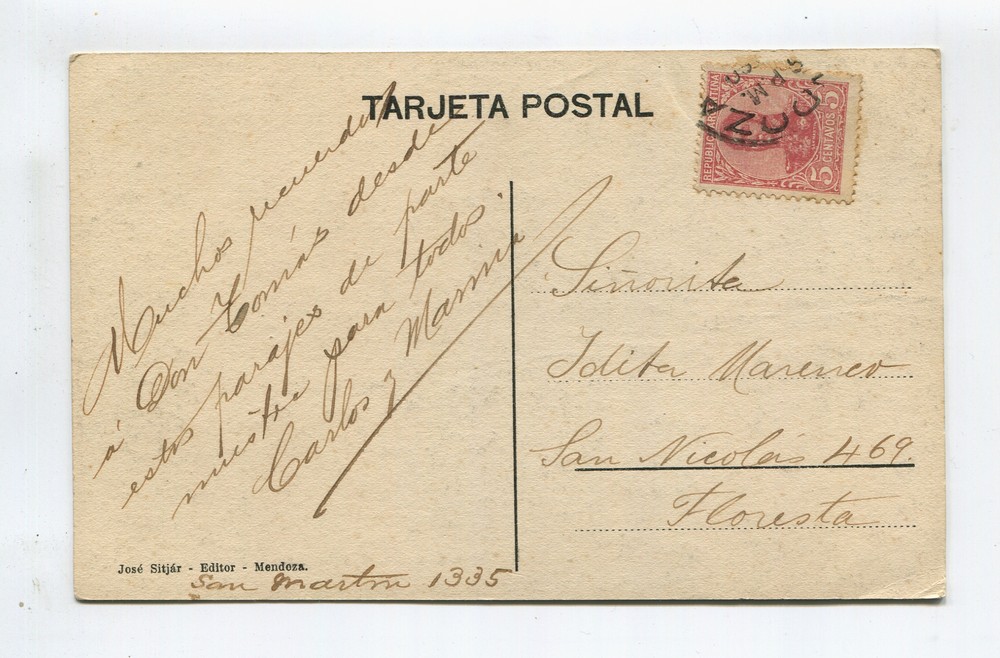 TARJETA POSTAL
REPUBLICA ARGENTINA
5 CENTAVOS 5
Muchos recuerdos
á Don Tomás desde
estos parajes de parte
nuestra para todos.
Carlos y
Señorita
Idita Marenco
San Nicolás 469.
Floresta
José Sitjár - Editor - Mendoza.
San Martín 1335